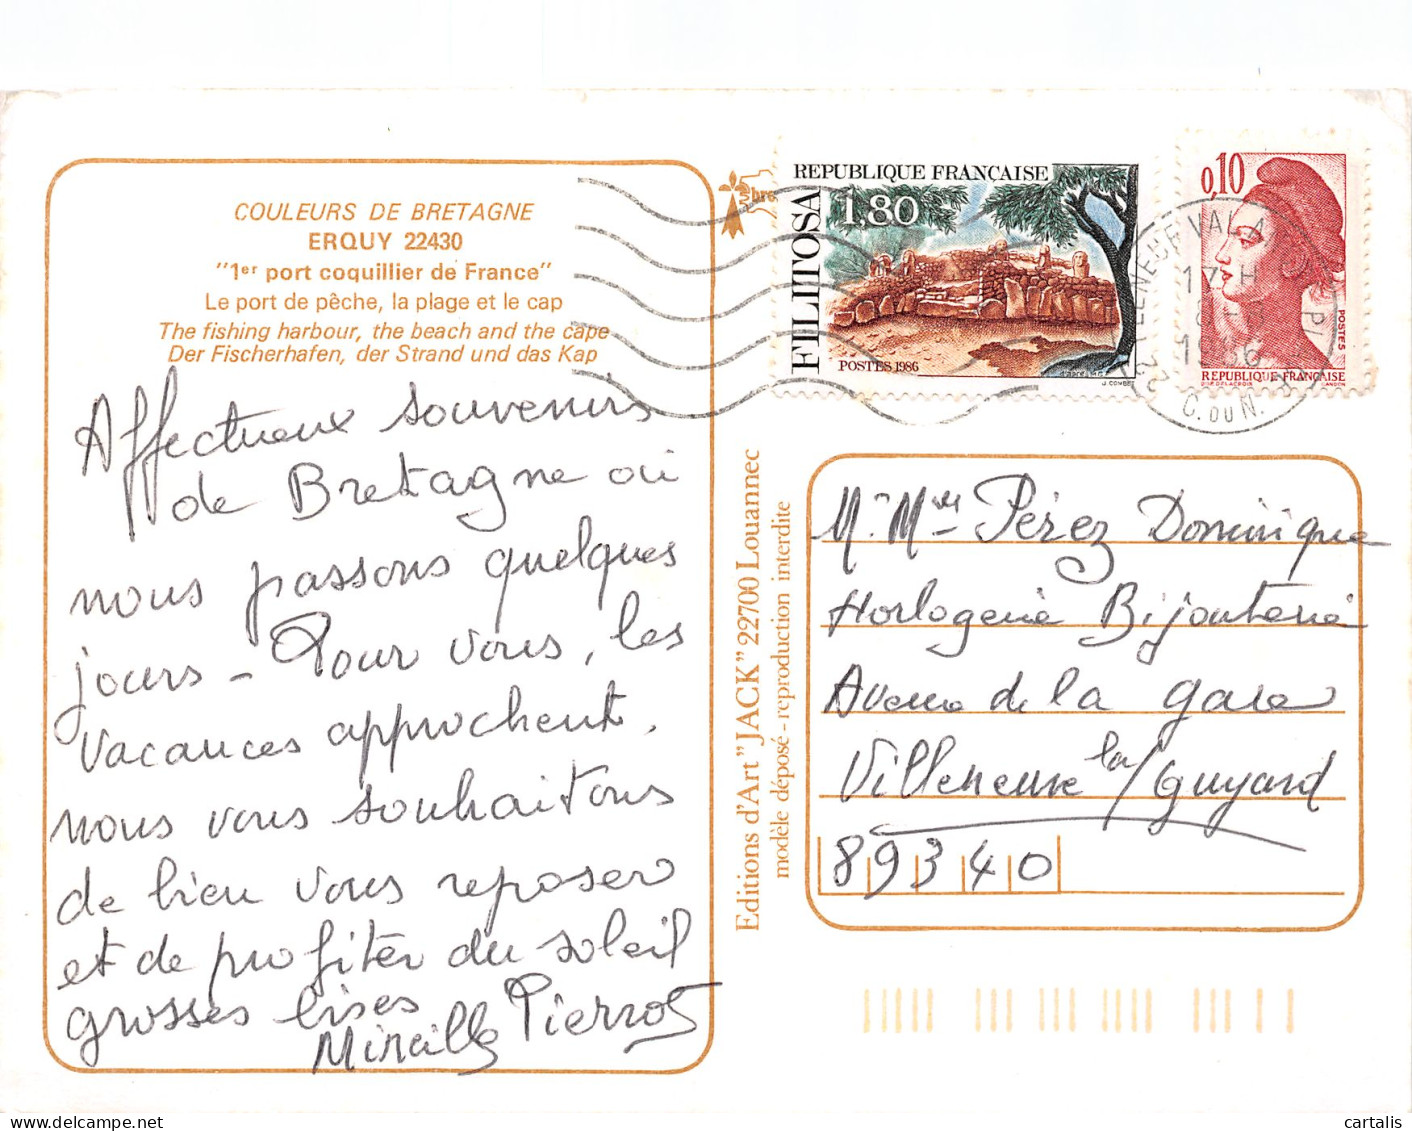 COULEURS DE BRETAGNE
ERQUY 22430
"1er port coquillier de France"
Le port de pêche, la plage et le cap
The fishing harbour, the beach and the cape
Der Fischerhafen, der Strand und das Kap
Affectueux souvenirs
de Bretagne où
nous passons quelques
jours - Pour vous, les
vacances approchent,
nous vous souhaitons
de bien vous reposer
et de profiter du soleil
grosses bises
Mireille Pierrot
Editions d'Art "JACK" 22700 Louannec
modèle déposé - reproduction interdite
REPUBLIQUE FRANÇAISE
1,80
FILITOSA
POSTES 1986
J. COMBET
0,10
POSTES
REPUBLIQUE FRANÇAISE
17 H
C. DU N.
Mr Mme Pérez Dominique
Horlogerie Bijouterie
Avenue de la gare
Villeneuve la Guyard
89340
cartalis